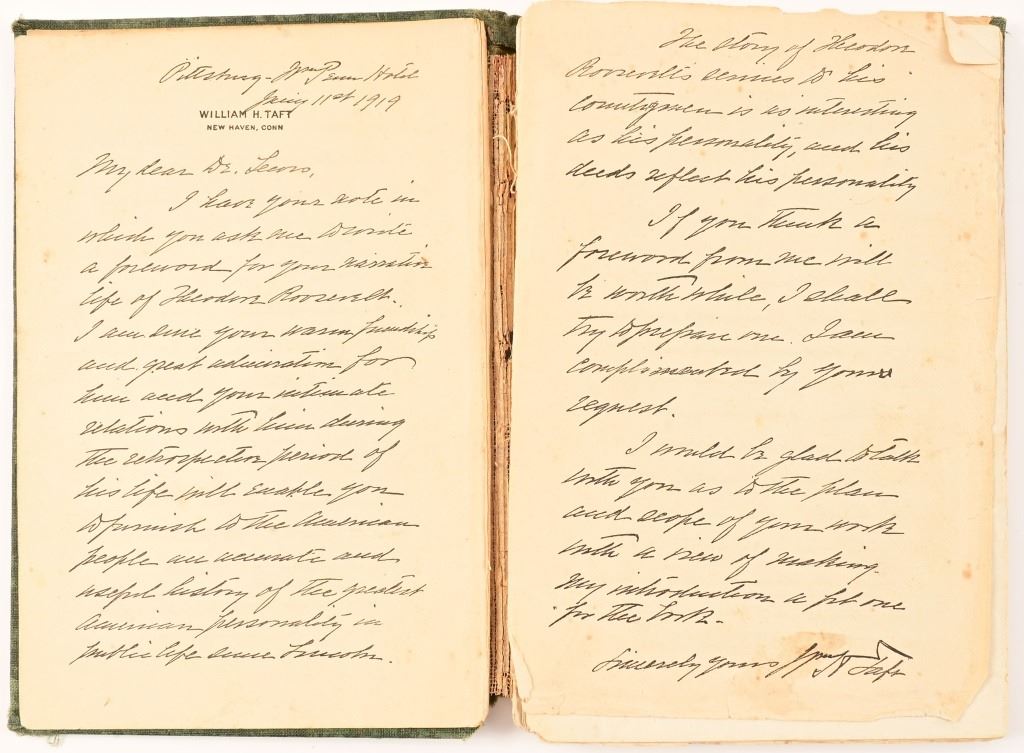 Pittsburg - Wm Penn Hotel
Jany 11st 1919
WILLIAM H. TAFT
NEW HAVEN, CONN
My dear Dr. Lewis,
I have your note in
which you ask me to write
a foreword for your narrative
life of Theodore Roosevelt.
I am sure your warm friendship
and great admiration for
him and your intimate
relations with him during
the retrospective period of
his life will enable you
to furnish to the American
people an accurate and
useful history of the greatest
American personality in
public life since Lincoln.
The story of Theodore
Roosevelt's services to his
countrymen is as interesting
as his personality, and his
deeds reflect his personality
If you think a
foreword from me will
be worth while, I shall
try to prepare one. I am
complimented by your
request.
I would be glad to talk
with you as to the plan
and scope of your work
with a view of making
my introduction a fit one
for the book.
Sincerely yours Wm H Taft